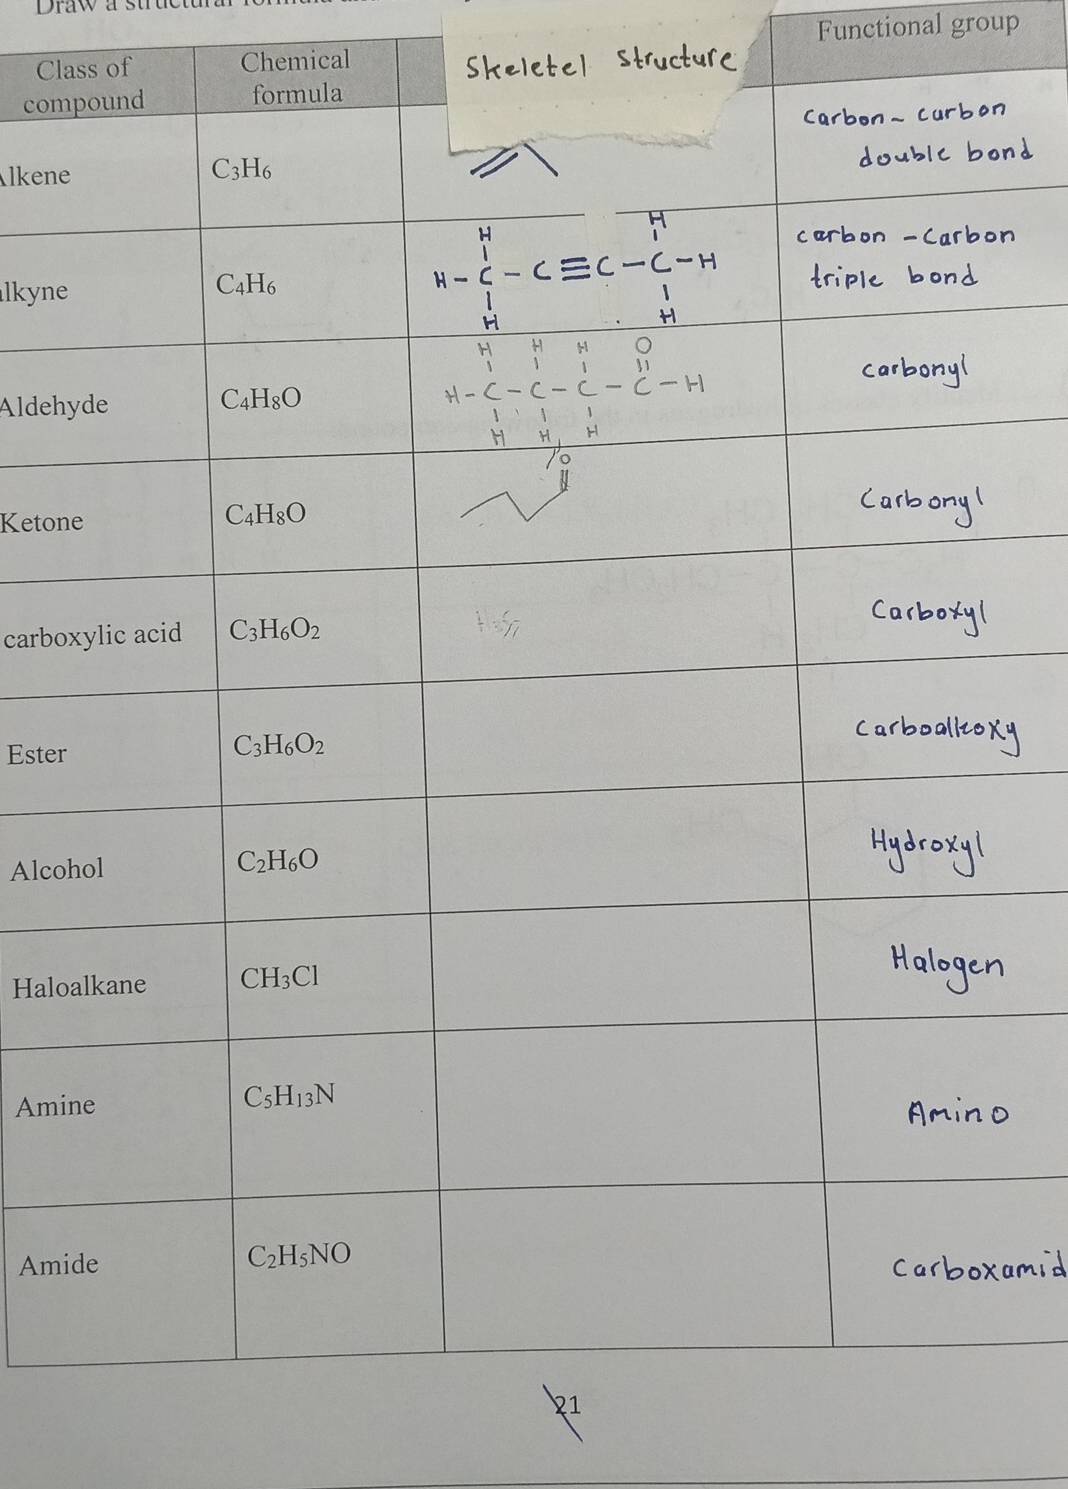 Draw a structural formula
Class of compound Chemical formula Skeletel structure Functional group
Alkene C₃H₆ carbon - carbon
double bond
alkyne C₄H₆ carbon - carbon
triple bond
H H
H - C - C ≡ C - C - H
H H
Aldehyde C₄H₈O carbonyl
H H H O
H - C - C - C - C - H
H H H
Ketone C₄H₈O O Carbonyl
carboxylic acid C₃H₆O₂ Carboxyl
Ester C₃H₆O₂ Carboalkoxy
Alcohol C₂H₆O Hydroxyl
Haloalkane CH₃Cl Halogen
Amine C₅H₁₃N Amino
Amide C₂H₅NO Carboxamid
21